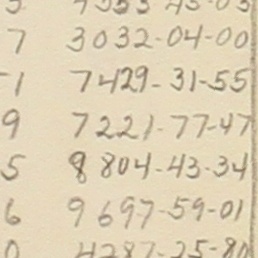 7 3032-04-00
1 7429-31-55
9 7221-77-47
5 8804-43-34
6 9697-59-01
0 4287-25-80